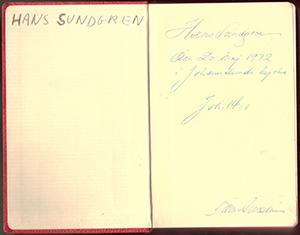 HANS SUNDGREN
Hans Sundgren
Den 20 maj 1972
i Johannelunds kyrka
Joh. 14:1